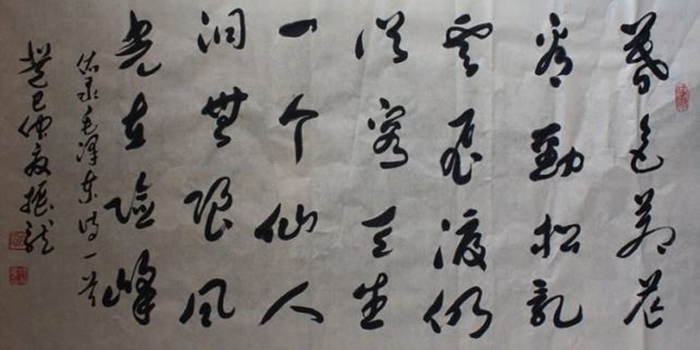 暮色苍茫
看劲松乱
云飞渡仍
从容天生
一个仙人
洞无限风
光在险峰
录毛泽东诗一首
癸巳仲夏振龙